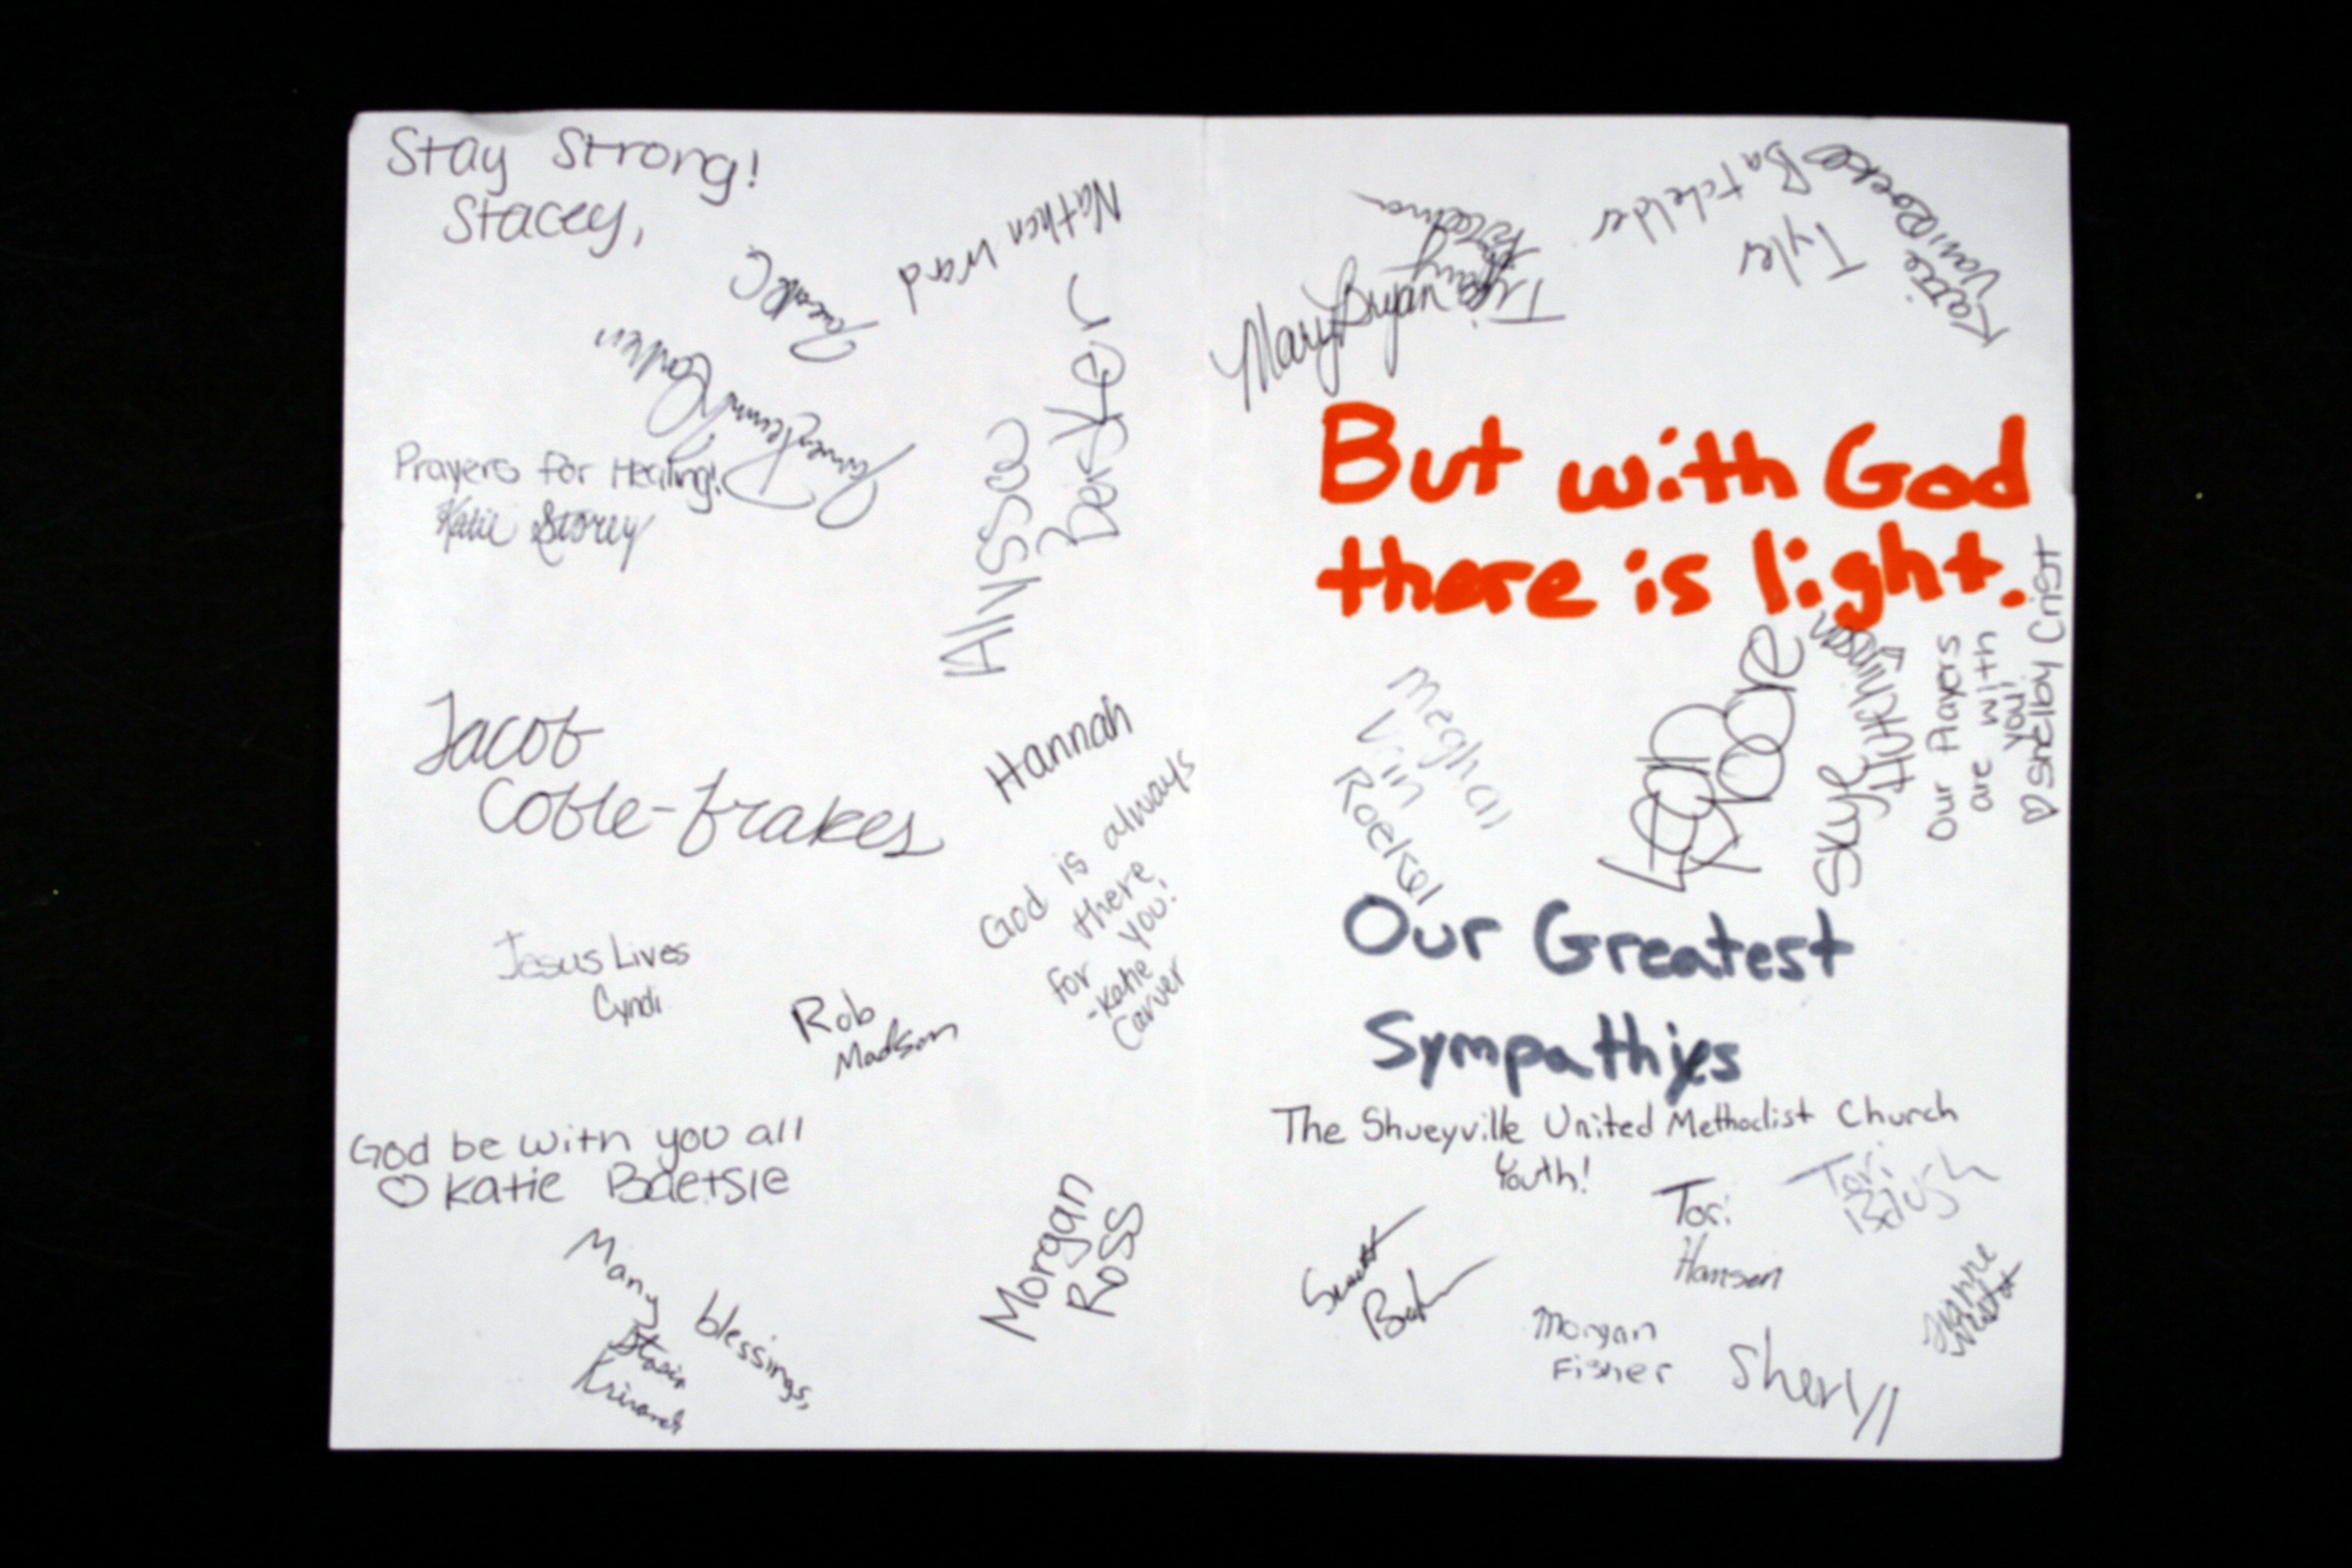 Stay Strong!
Stacey,
Jacob C
Nathan Ward
Prayers for Healing!
Katie Storey
Alyssa
Berker
Jacob
Coble-frakes
Hannah
God is always
there
for you!
-Katie
Carver
Jesus Lives
Cyndi
Rob
Madson
God be with you all
♡ Katie Baetsle
Many blessings,
Stasia
Morgan
Ross
Mary Bryan
Tiffany
Tyler
Batchelder
Katie
Van Roekel
But with God
there is light.
Meghan
Van
Roekel
Ian
Moore
Skye
Hutchinson
Our Prayers
are with
you!
♡ Shelby Crist
Our Greatest
Sympathies
The Shueyville United Methodist Church
Youth!
Tori
Hansen
Tori
Morgan
Fisher
Sheryl